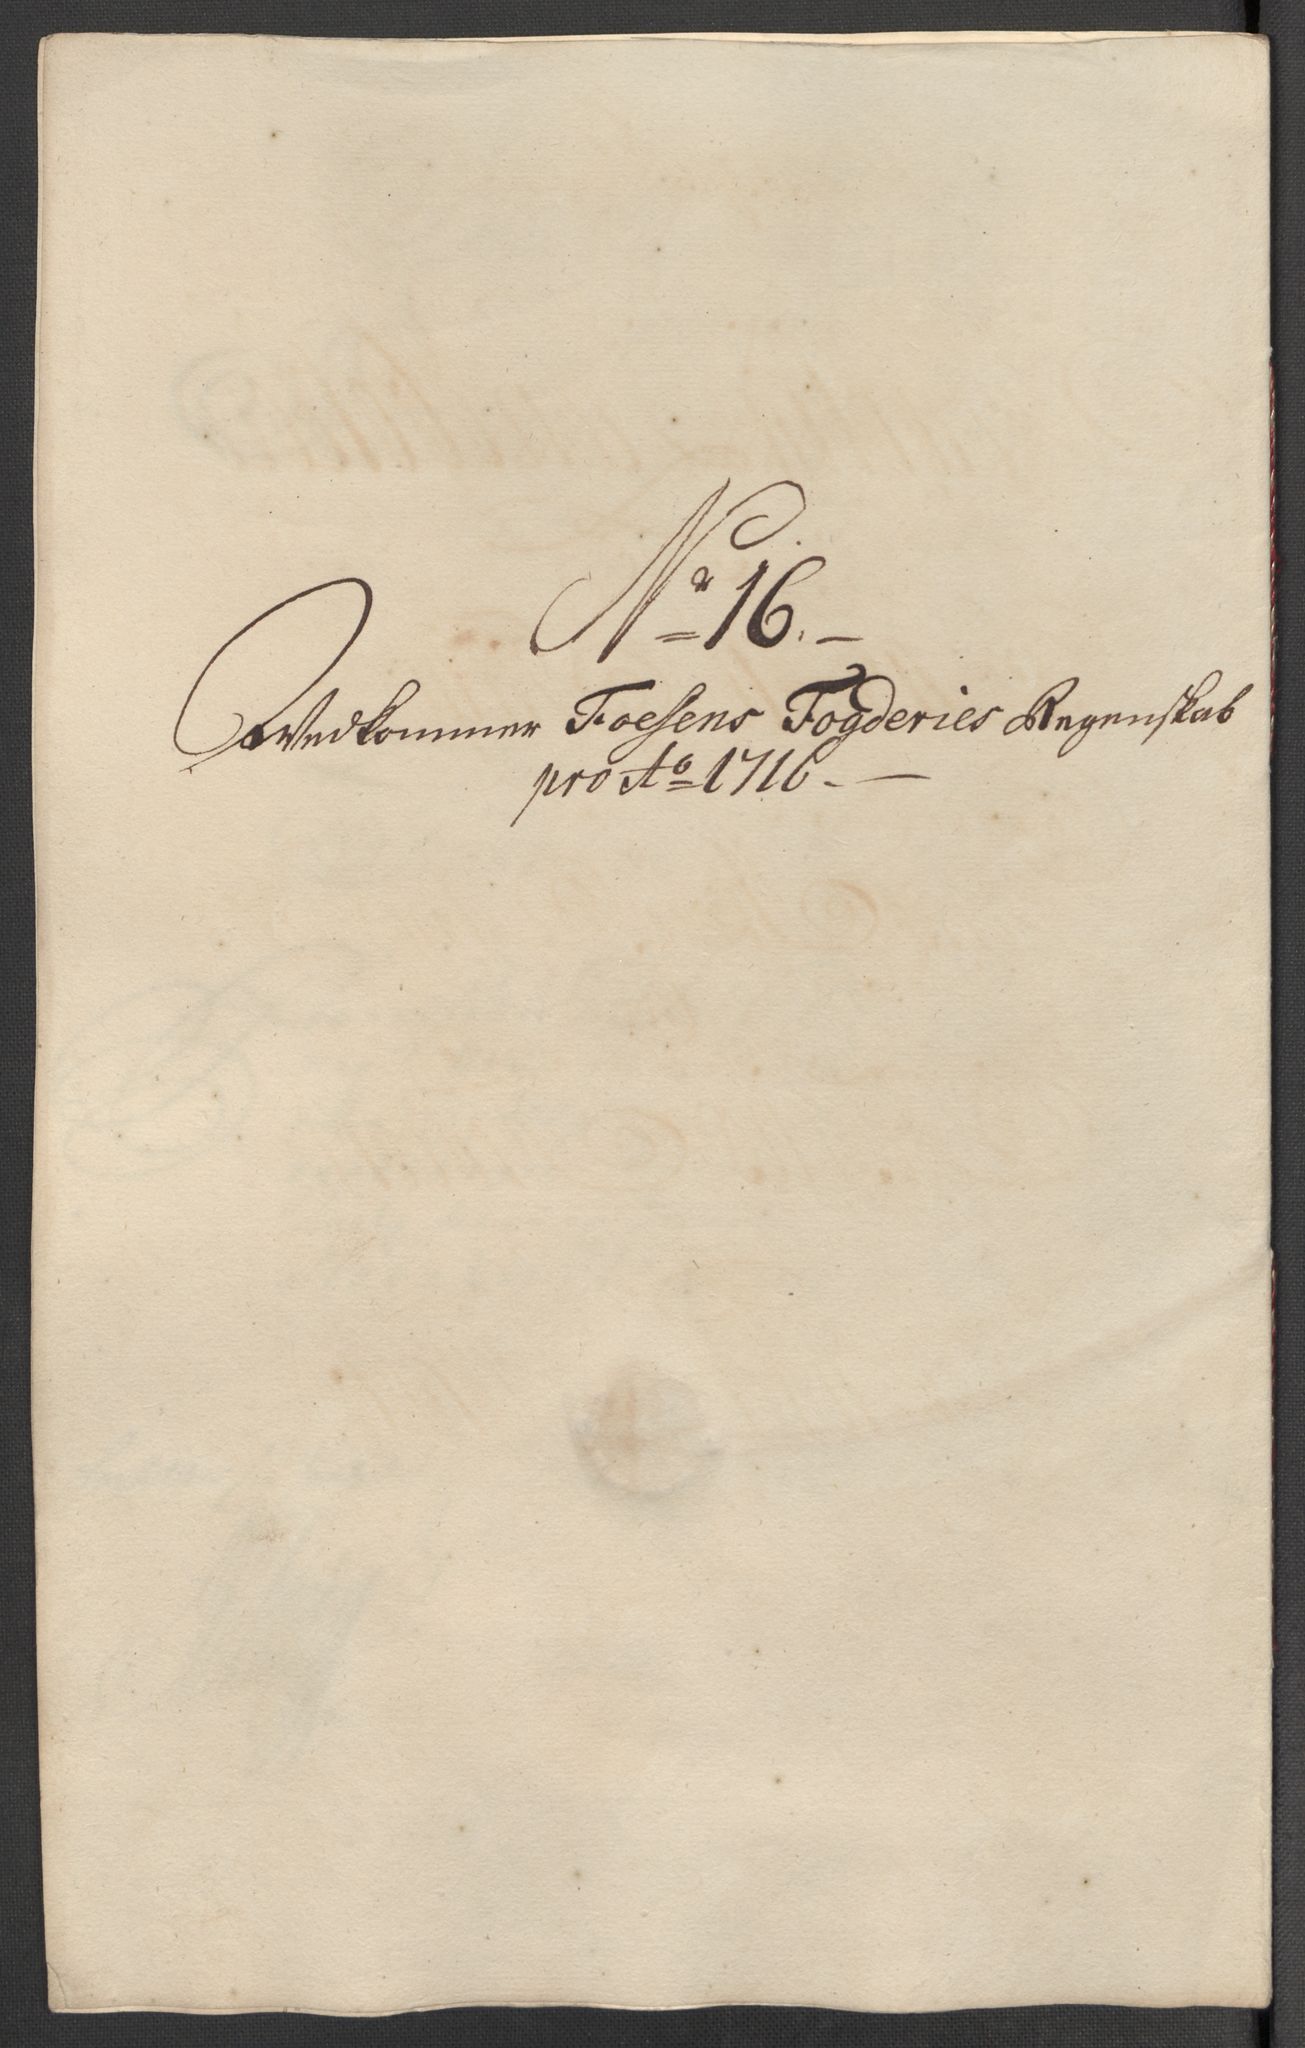 Nr 16.
Vedkommer Foesens Fogderies Regenskab
pro Ao 1716.